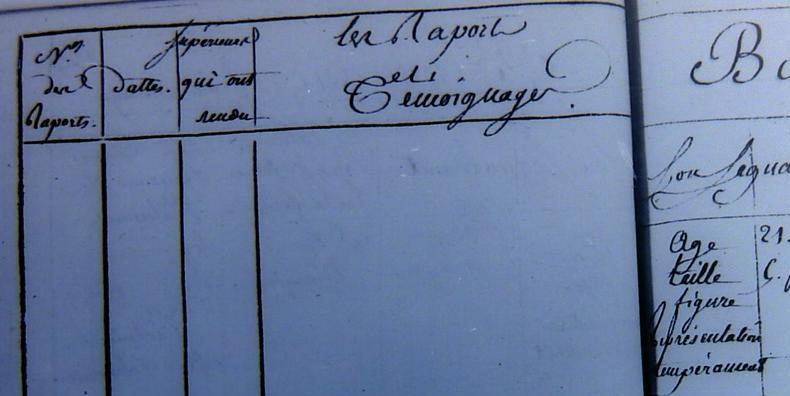 Nos
des
Raports.
dattes.
supérieurs
qui ont
rendu
les Raports
et
Témoignages.
Son Signa
Age 21.
taille
figure
Représentation
tempérament